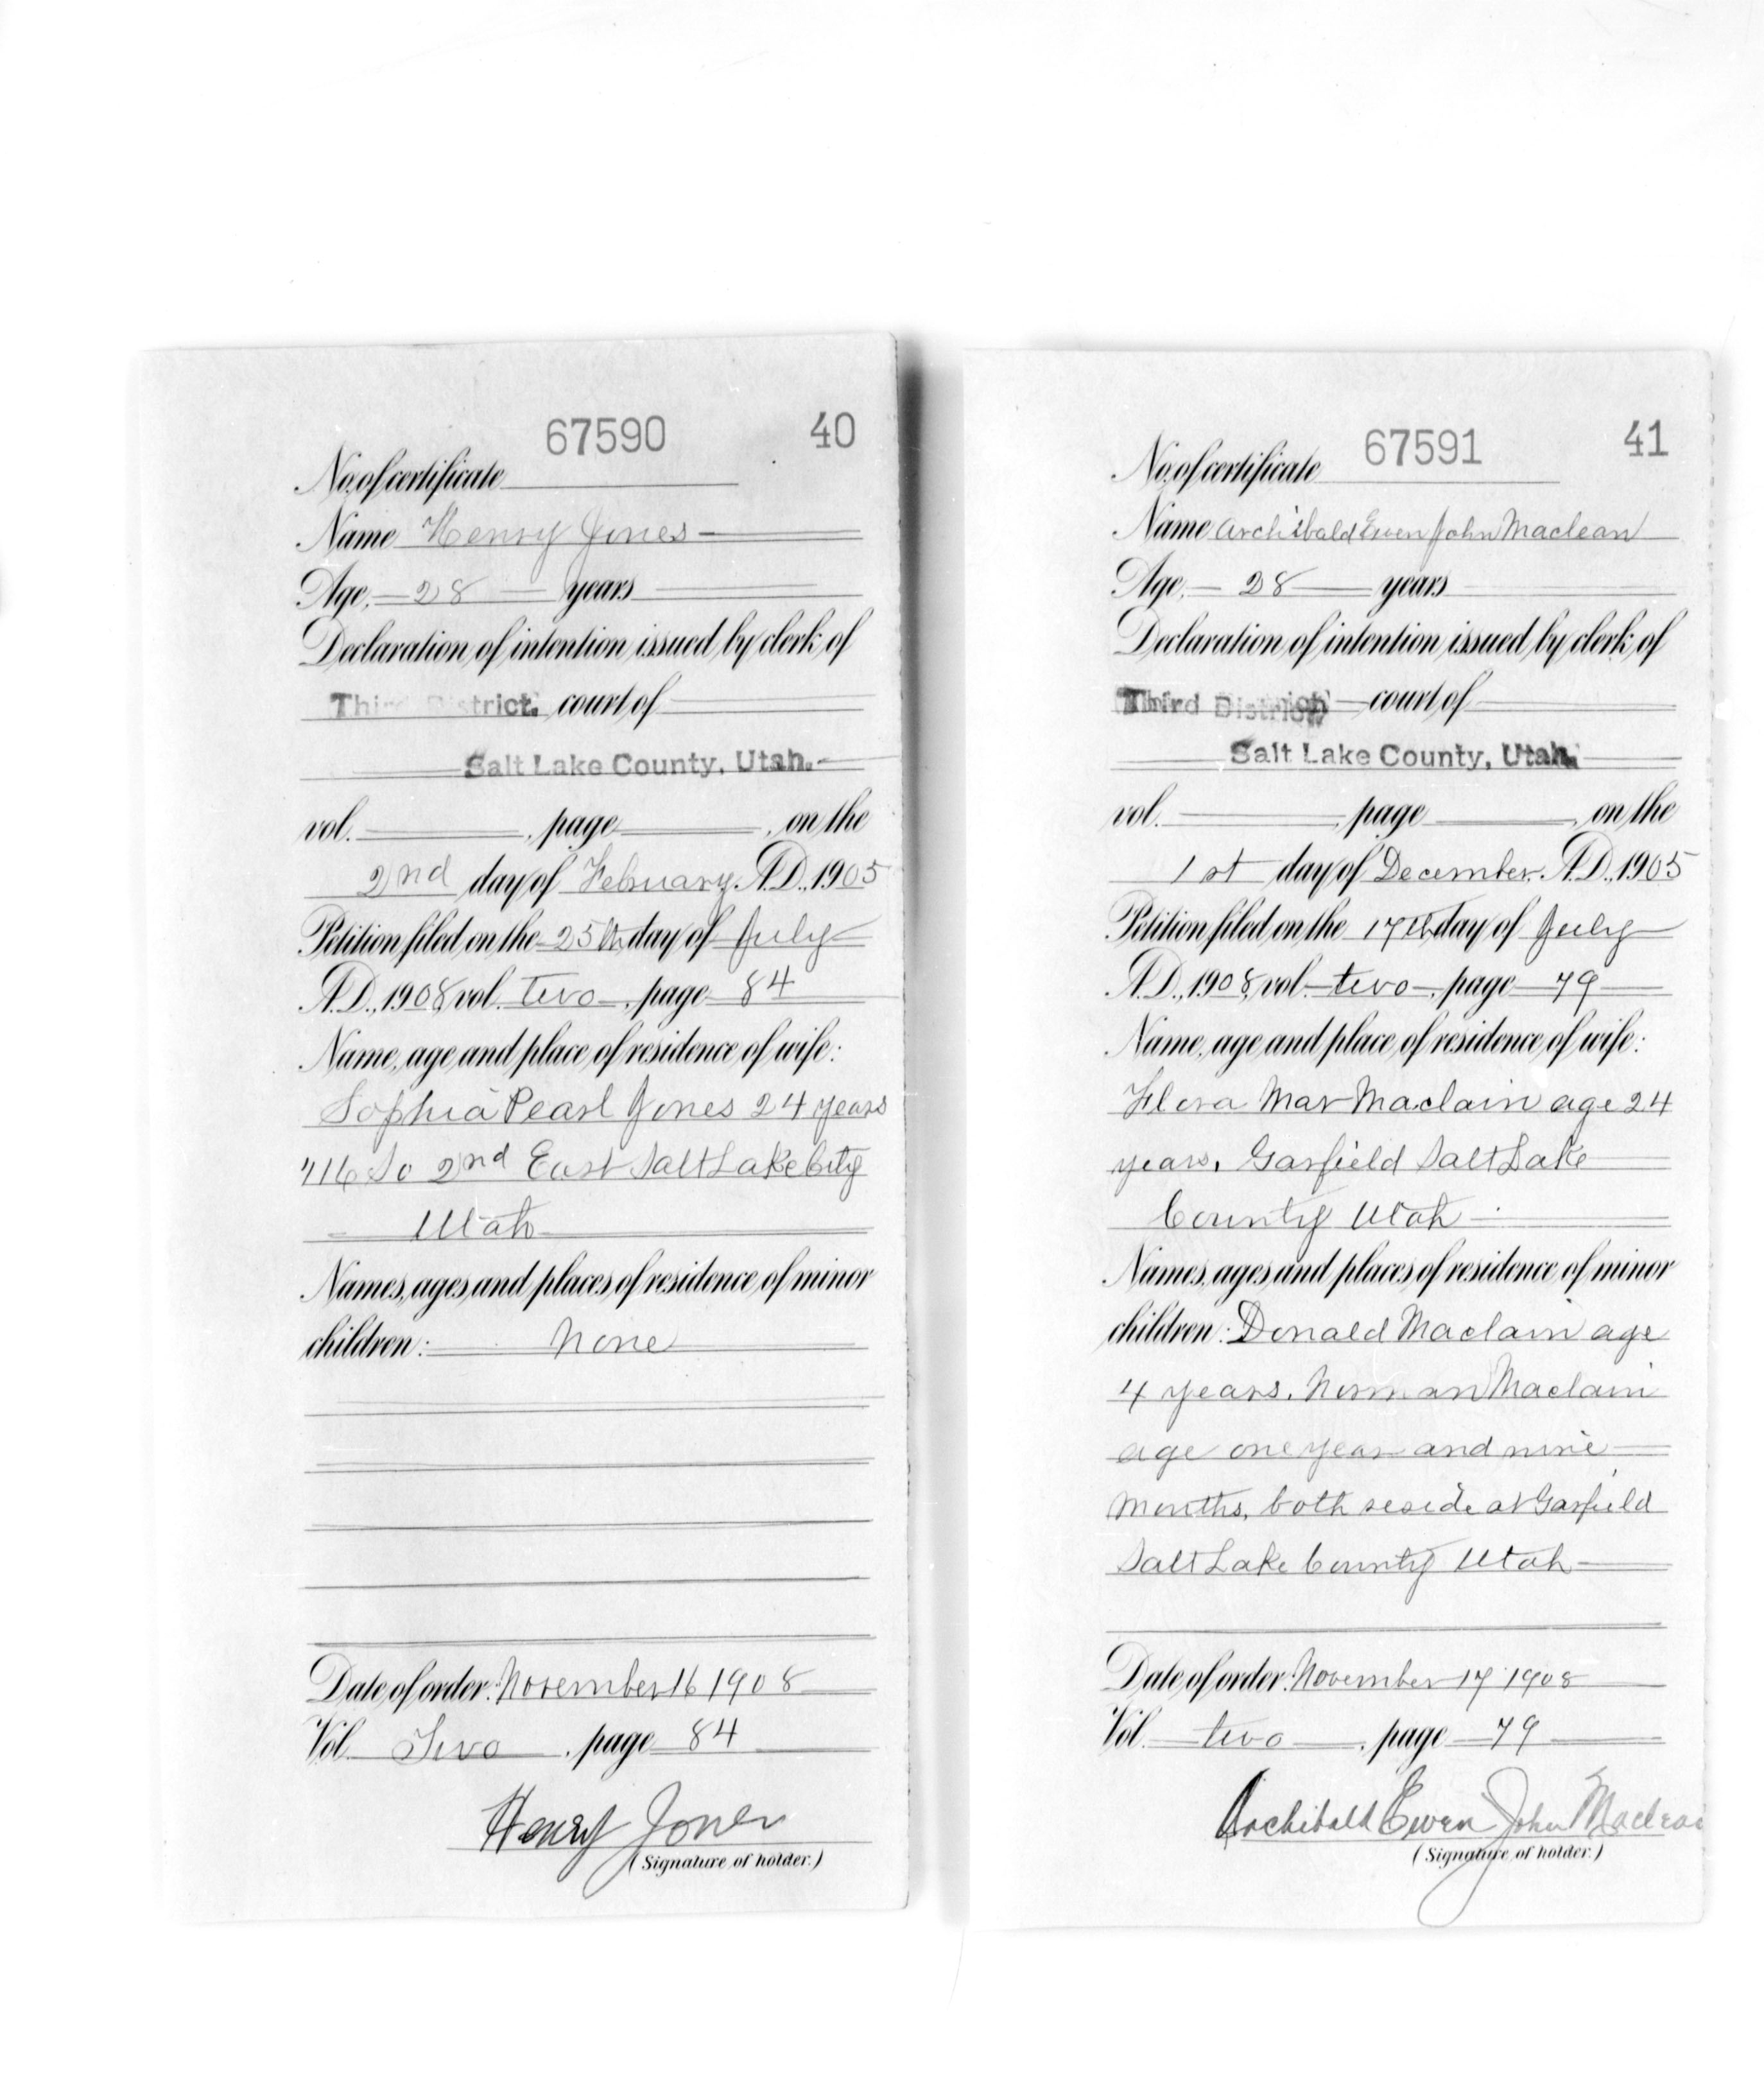 67590 40
No. of certificate
Name Henry Jones
Age, 28 years
Declaration of intention issued by clerk of
Third District. court of
Salt Lake County, Utah.
vol. , page , on the
2nd day of February A.D., 1905
Petition filed on the 25th day of July
A.D., 1908, vol. Two , page 84
Name, age and place of residence of wife:
Sophia Pearl Jones 24 years
716 So 2nd East Salt Lake City
Utah
Names, ages and places of residence of minor
children: None
Date of order: November 16 1908
Vol. Two , page 84
Henry Jones
(Signature of holder.)
67591 41
No. of certificate
Name Archibald Ewen John Maclean
Age, 28 years
Declaration of intention issued by clerk of
Third District court of
Salt Lake County, Utah.
vol. , page , on the
1st day of December A.D., 1905
Petition filed on the 17th day of July
A.D., 1908, vol. two , page 79
Name, age and place of residence of wife:
Flora Maclain age 24
years, Garfield Salt Lake
County Utah
Names, ages and places of residence of minor
children: Donald Maclain age
4 years. Norman Maclain
age one year and nine
months, both reside at Garfield
Salt Lake County Utah
Date of order: November 17 1908
Vol. two , page 79
Archibald Ewen John Maclean
(Signature of holder.)